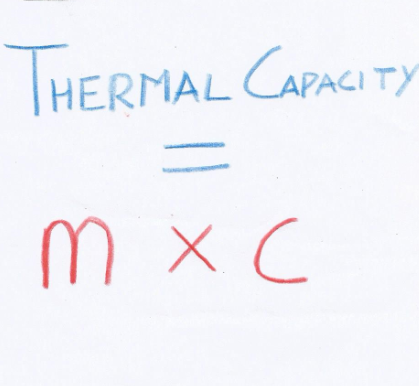 THERMAL CAPACITY
=
m × c